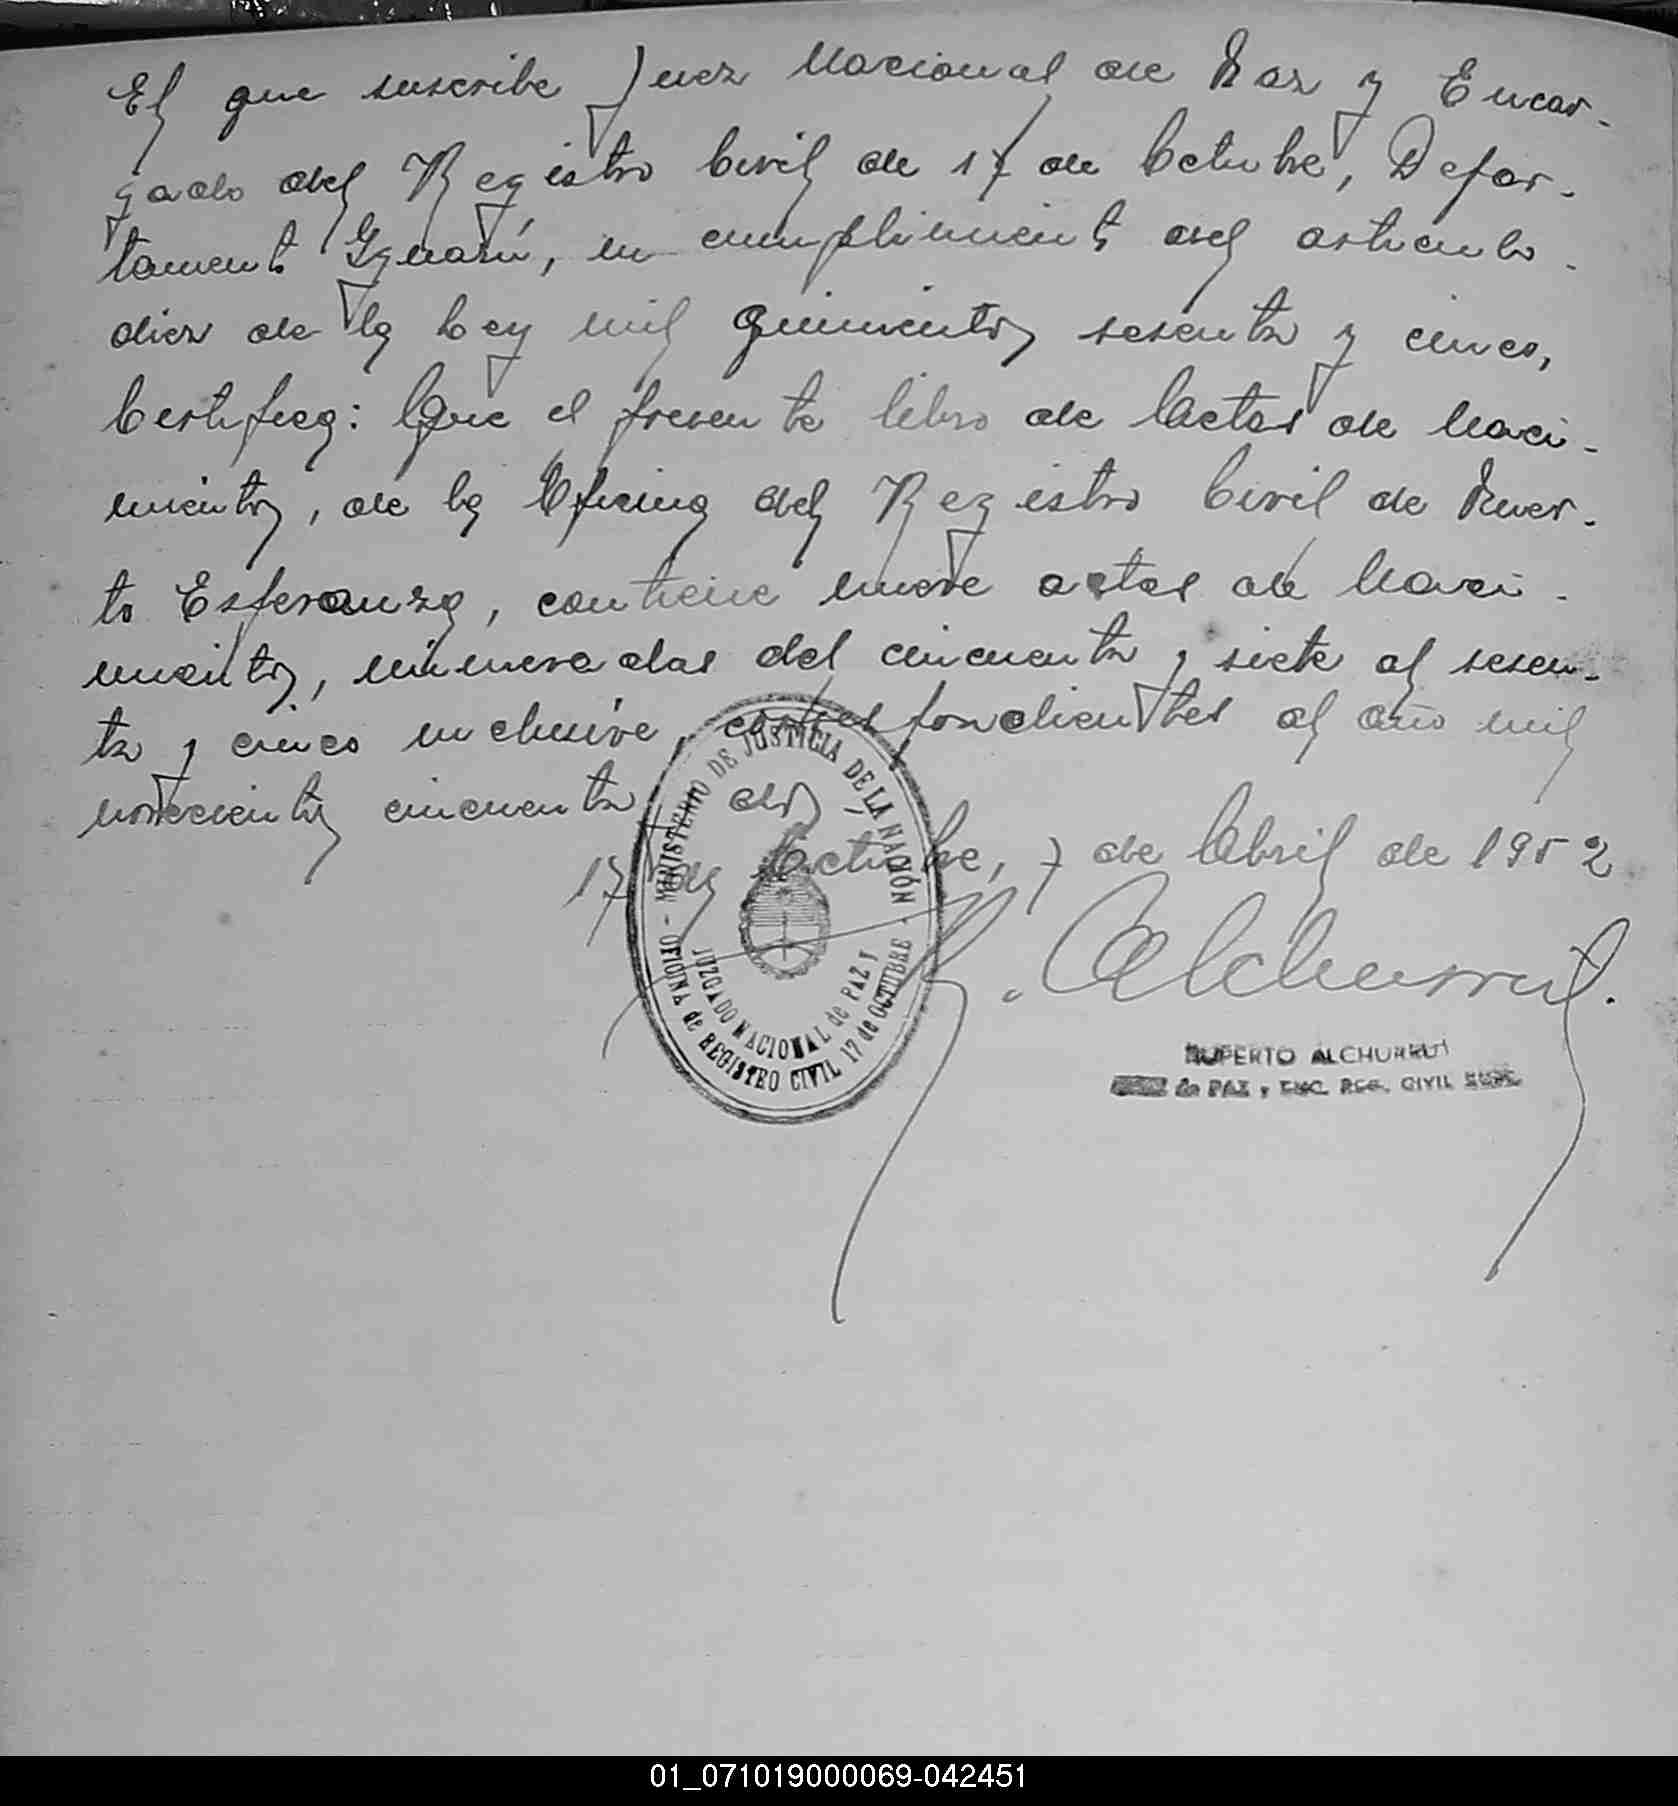 El que suscribe Juez Nacional de Paz y Encar-
gado del Registro Civil de 17 de Octubre, Depar-
tamento Iguazú, en cumplimiento del artículo
diez de la Ley mil quinientos sesenta y cinco,
Certifica: Que el presente libro de Actas de Naci-
mientos, de la Oficina del Registro Civil de Puer-
to Esperanza, contiene nueve actas de Naci-
mientos, númeradas del cincuenta y siete al sesen-
ta y cinco inclusive, correspondientes al año mil
novecientos cincuenta y dos
17 de Octubre, 7 de Abril de 1952
R. Alchurrut.
MINISTERIO DE JUSTICIA DE LA NACIÓN
JUZGADO NACIONAL de PAZ Y
- OFICINA de REGISTRO CIVIL 17 de OCTUBRE -
RUPERTO ALCHURRUT
de PAZ y ENC. REG. CIVIL
01_071019000069-042451